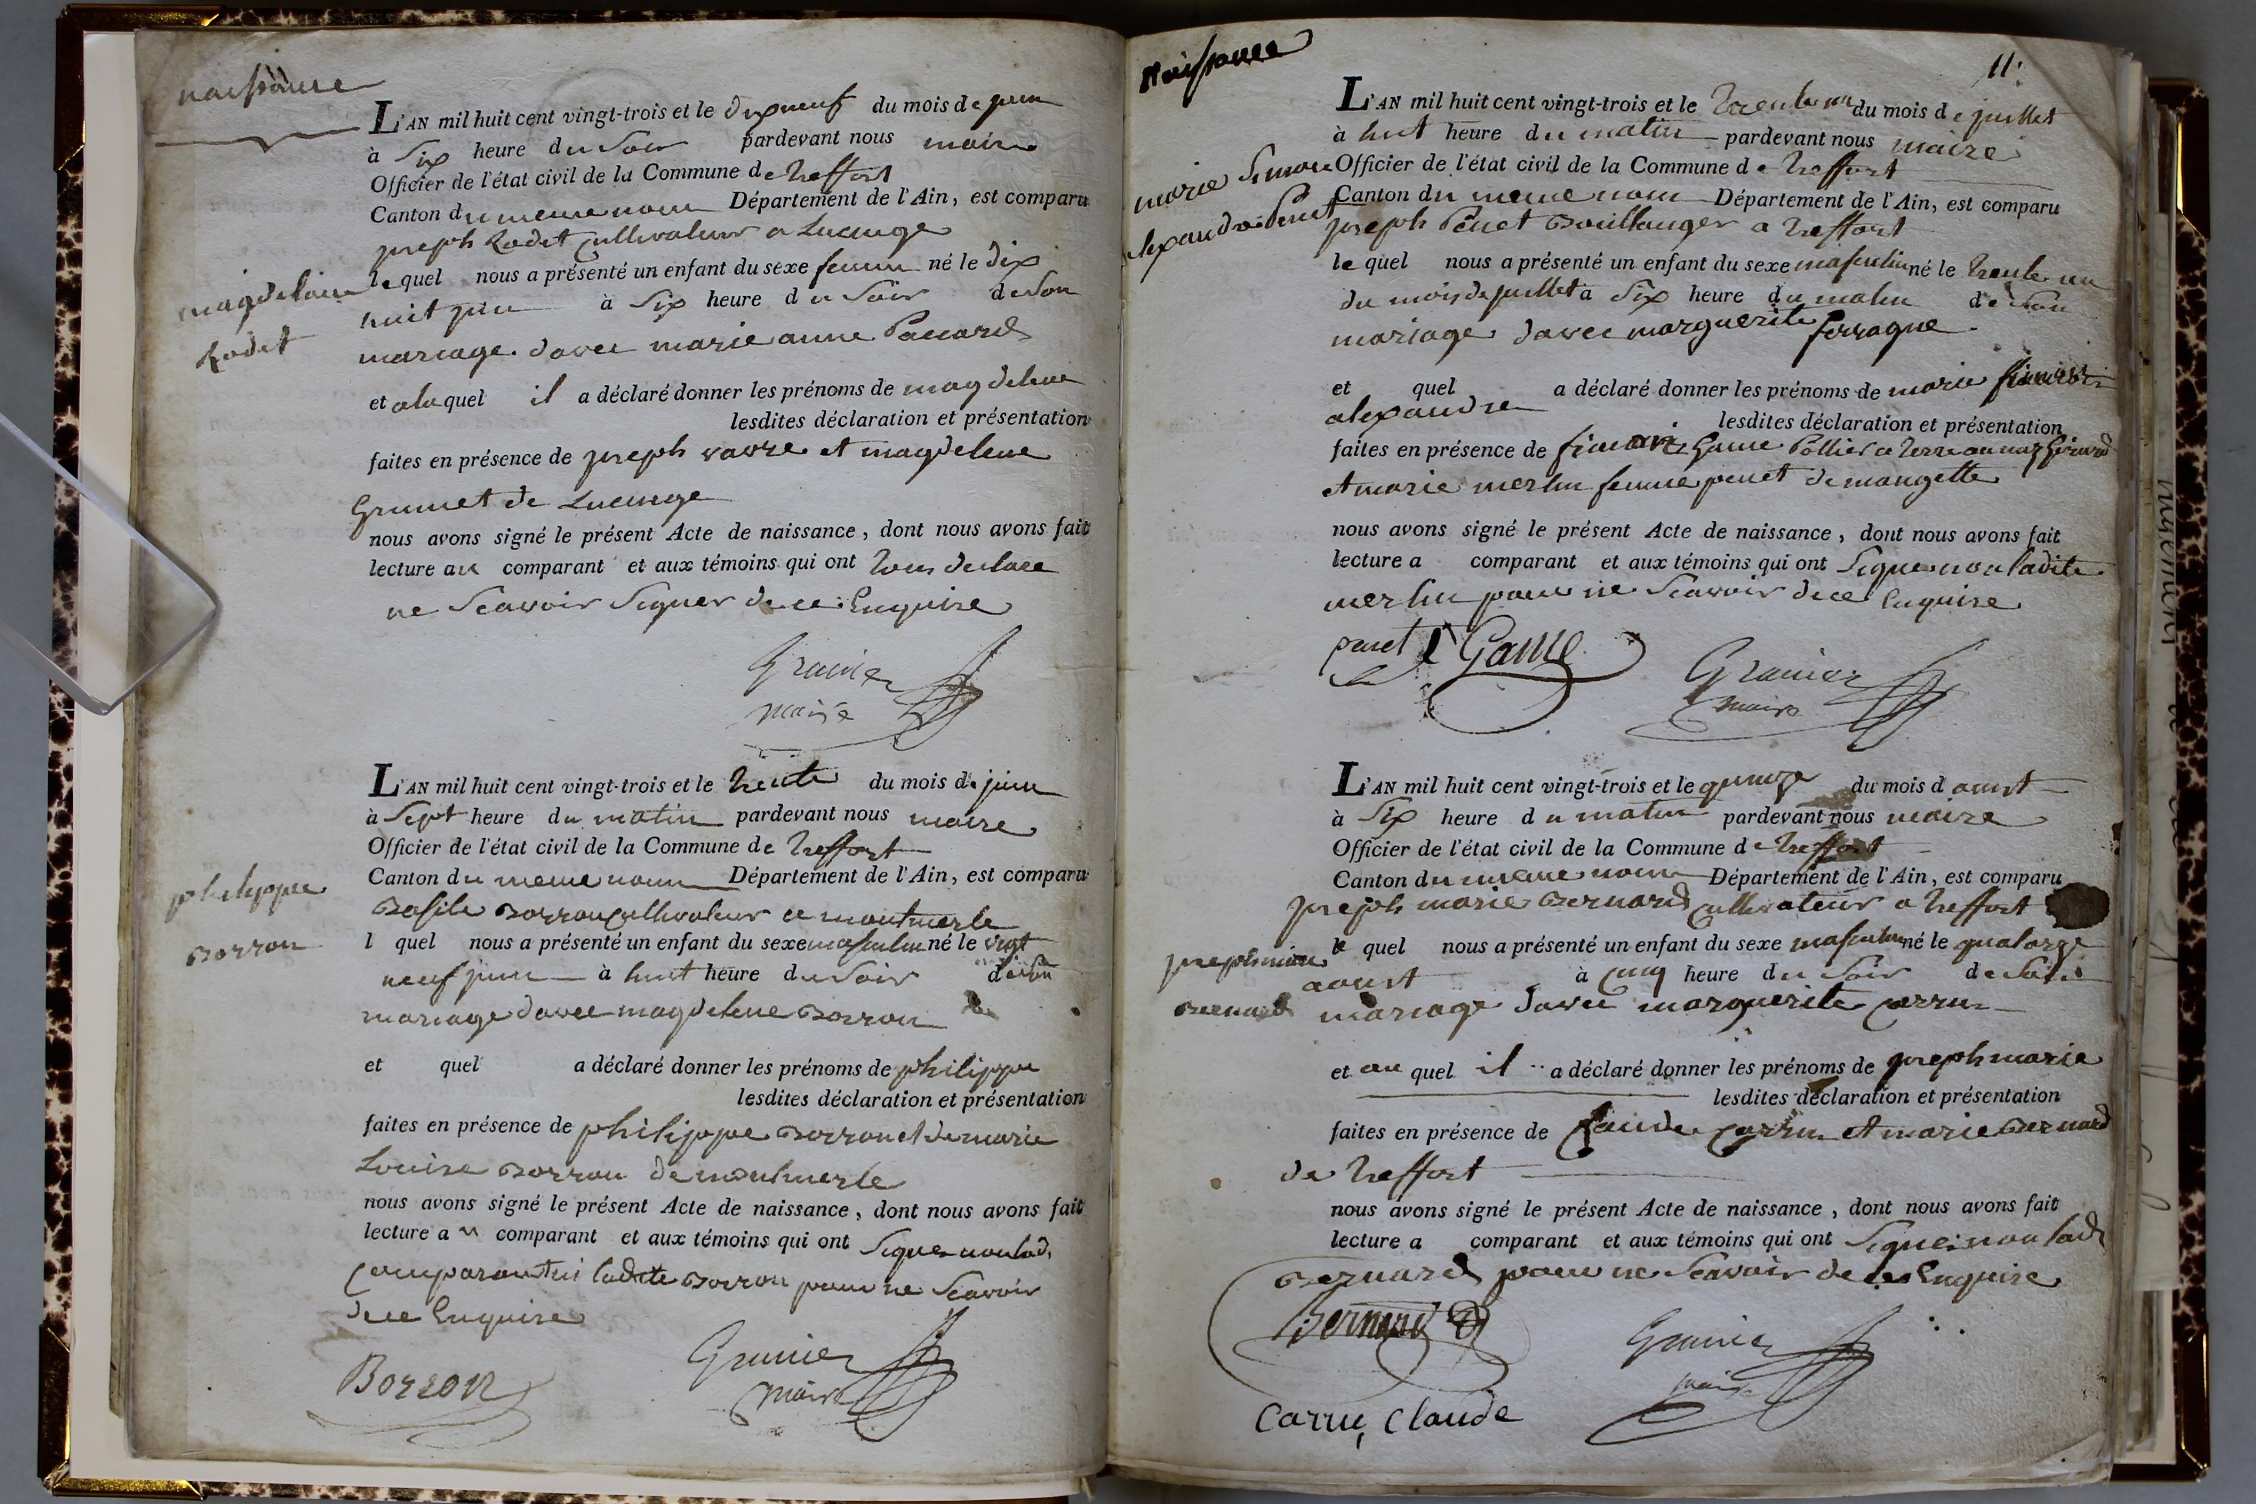 naissance
L'AN mil huit cent vingt-trois et le dixneuf du mois de juin
à Six heure du Soir pardevant nous maire
Officier de l'état civil de la Commune de treffort
Canton du meme nom Département de l'Ain, est comparu
joseph Rodet Cultivateur a Lucinge
le quel nous a présenté un enfant du sexe feminin né le dix
huit juin à Six heure du Soir de Son
mariage davec marie anne
magdelaine
Rodet
et a la quel il a déclaré donner les prénoms de magdelene
lesdites déclaration et présentation
faites en présence de joseph vavre et magdelene
Grumet de Lucinge
nous avons signé le présent Acte de naissance, dont nous avons fait
lecture au comparant et aux témoins qui ont tous declare
ne Scavoir Signer de ce Enquise
Grainier
maire
L'AN mil huit cent vingt-trois et le trente du mois de juin
à Sept heure du matin pardevant nous maire
Officier de l'état civil de la Commune de treffort
Canton du meme nom Département de l'Ain, est comparu
Basile Borron Cultivateur a montmerle
l quel nous a présenté un enfant du sexe masculin né le vingt
neuf juin à huit heure du Soir de Son
mariage davec magdelene Borron
philippe
Borron
et quel a déclaré donner les prénoms de philippe
lesdites déclaration et présentation
faites en présence de philippe Borron et de marie
Louise Borron de montmerle
nous avons signé le présent Acte de naissance, dont nous avons fait
lecture au comparant et aux témoins qui ont Signe non
Comparant ni ladite Borron pour ne Scavoir
de ce Enquise
Borron
Grainier
maire
Naissance
11.
L'AN mil huit cent vingt-trois et le trente un du mois de juillet
à huit heure du matin pardevant nous maire
Officier de l'état civil de la Commune de treffort
Canton du meme nom Département de l'Ain, est comparu
joseph Penet Boullanger a treffort
le quel nous a présenté un enfant du sexe masculin né le trente un
du mois de juillet à Six heure du matin de Son
mariage davec marguerite ferragne
marie Simon
alexandre Penet
et quel a déclaré donner les prénoms de marie
alexandre
lesdites déclaration et présentation
faites en présence de Game Pottier a
et marie merlin femme penet de mongette
nous avons signé le présent Acte de naissance, dont nous avons fait
lecture a comparant et aux témoins qui ont Signe non ladite
merlin pour ne Scavoir de ce Enquise
penet Game
Grainier
maire
L'AN mil huit cent vingt-trois et le quinze du mois d aoust
à Six heure du matin pardevant nous maire
Officier de l'état civil de la Commune de treffort
Canton du meme nom Département de l'Ain, est comparu
joseph marie Bernard Cultivateur a treffort
le quel nous a présenté un enfant du sexe masculin né le quatorze
aoust à Cinq heure du Soir de Son
mariage davec marguerite Carru
joseph marie
Bernard
et au quel il a déclaré donner les prénoms de joseph marie
lesdites déclaration et présentation
faites en présence de Claude Carru et marie Bernard
de treffort
nous avons signé le présent Acte de naissance, dont nous avons fait
lecture a comparant et aux témoins qui ont Signe non lad
Bernard pour ne Scavoir de ce Enquise
Bernard
Grainier
maire
Carru, Claude